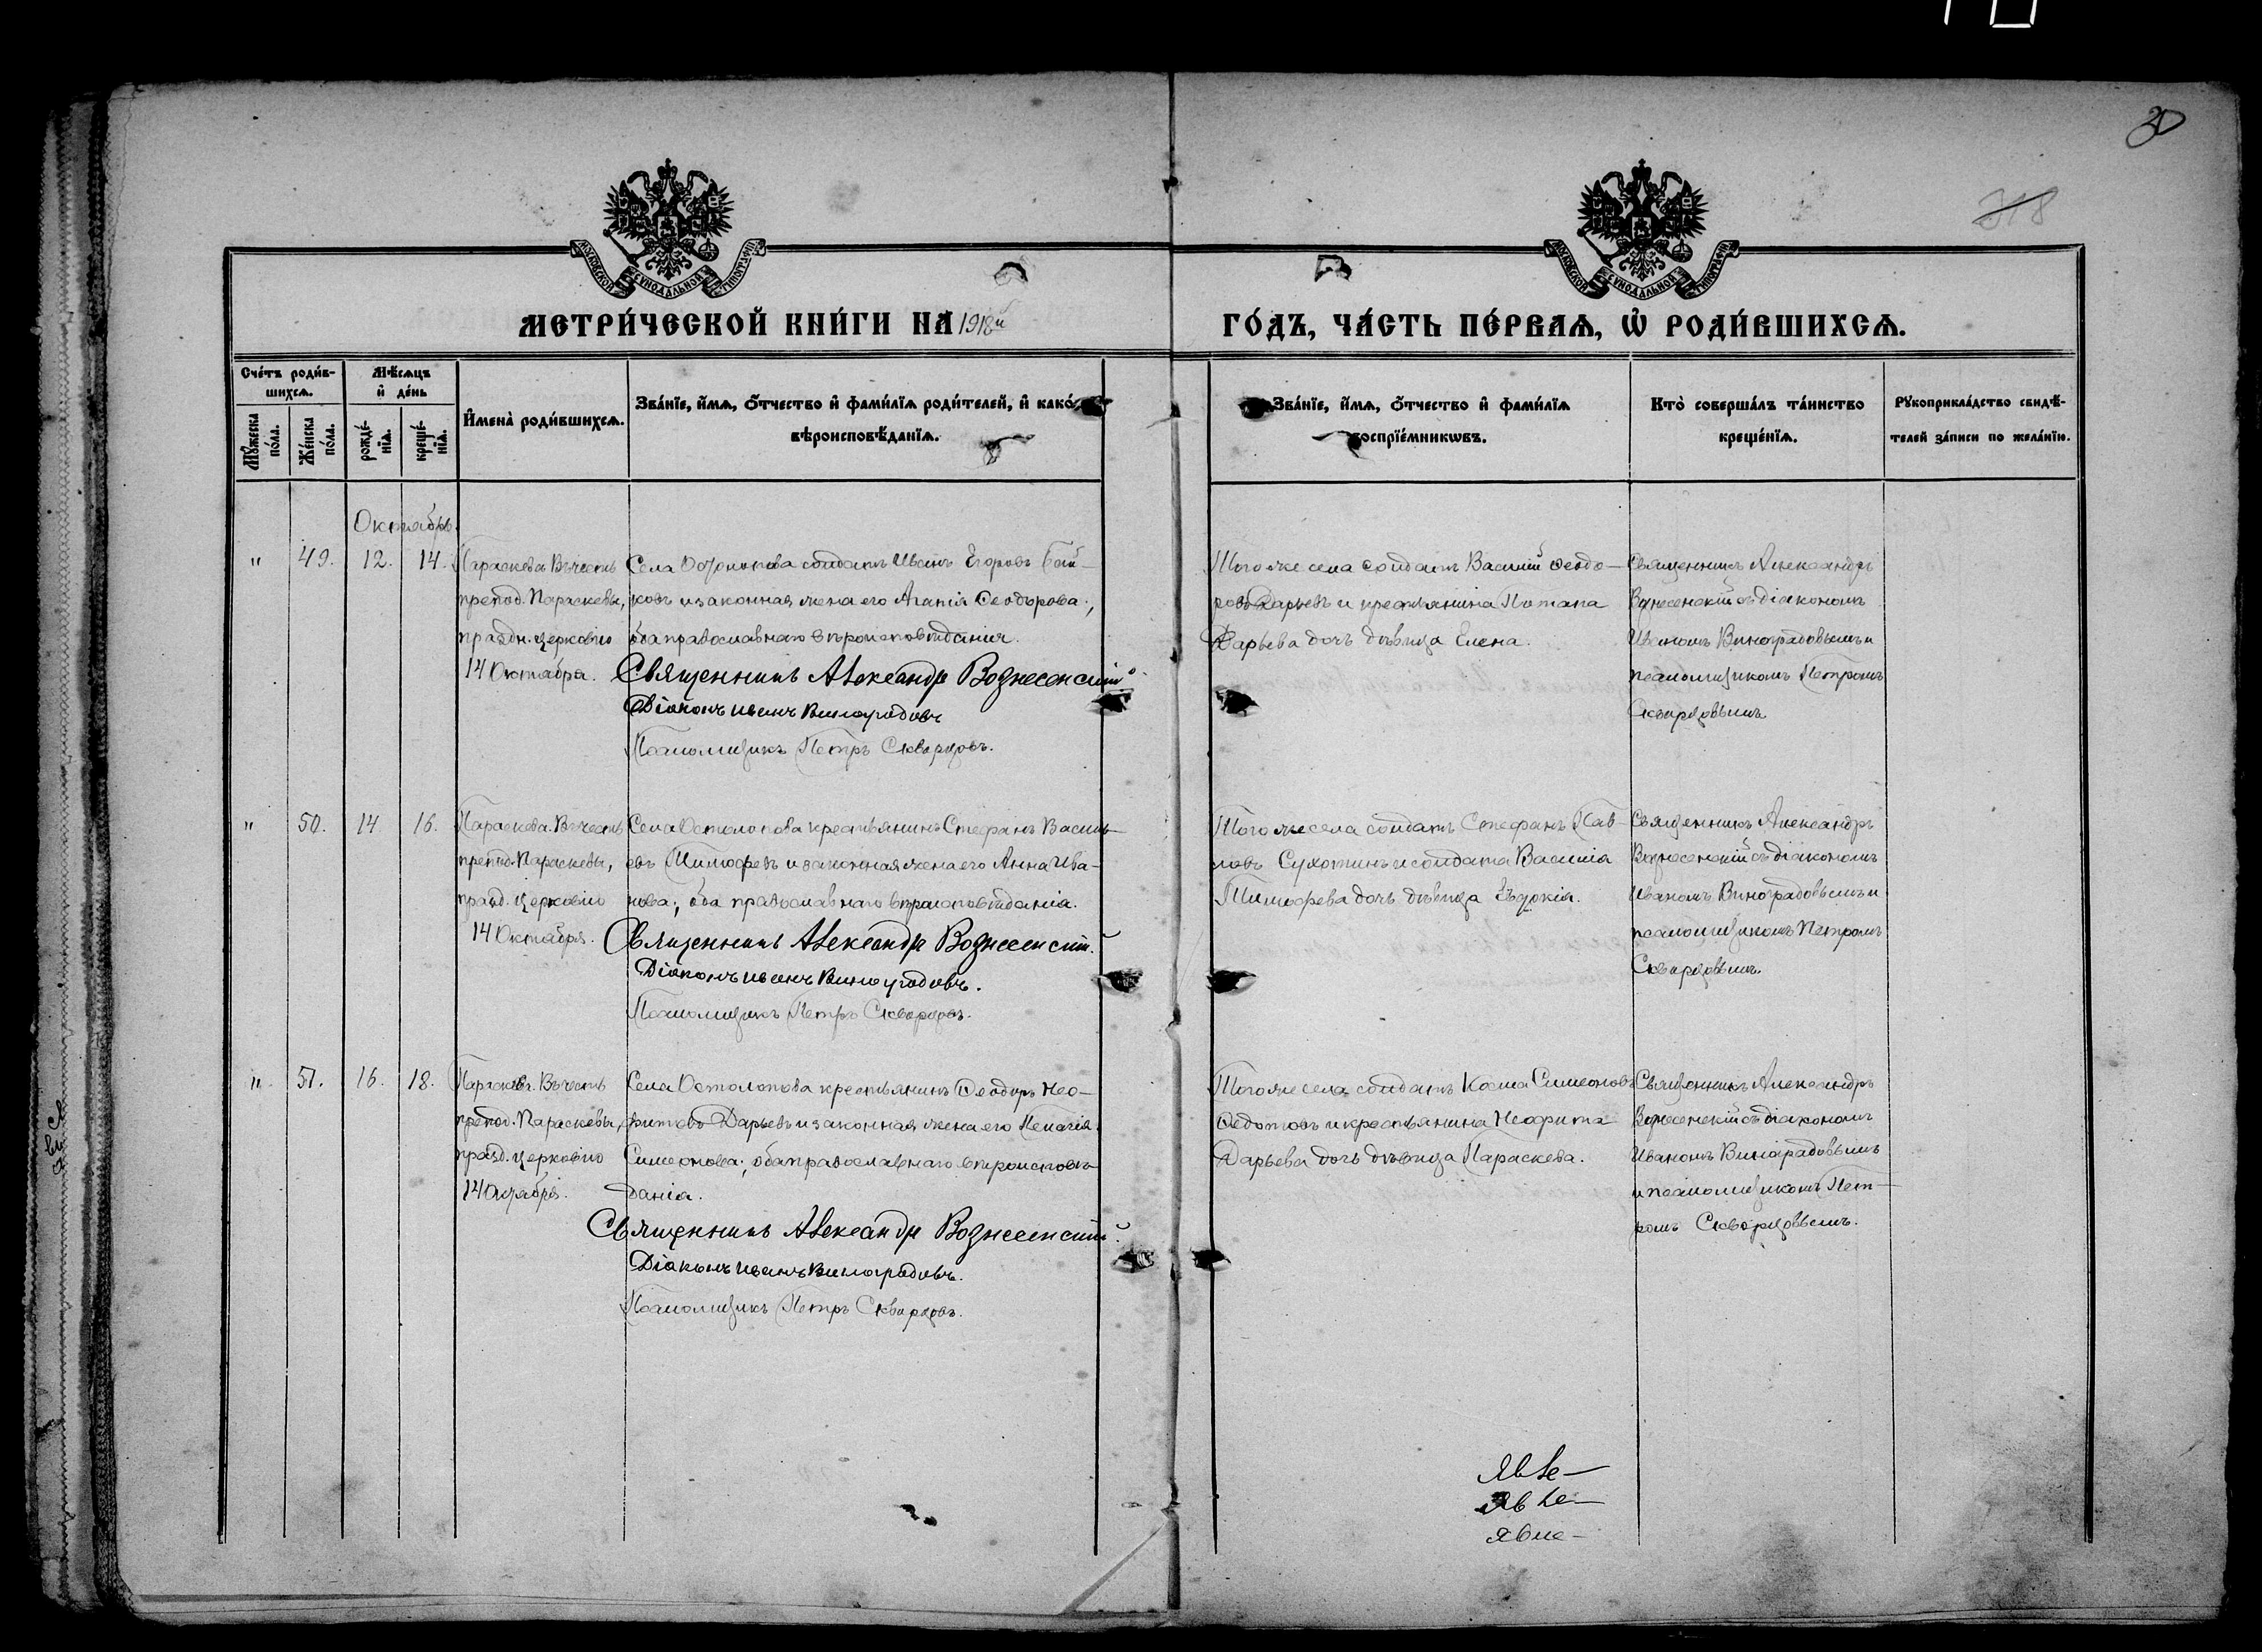 30
318
МОСКОВСКОЙ СѴНОДАЛЬНОЙ ТИПОГРАФІИ
МОСКОВСКОЙ СѴНОДАЛЬНОЙ ТИПОГРАФІИ
МЕТРИ́ЧЕСКОЙ КНИ́ГИ НА 1918й
ГО́ДЪ, ЧА́СТЬ ПЕ́РВАѦ, Ѽ РОДИ́ВШИХСѦ.
Сче́тъ роди́в-
шихсѧ.
Мꙋ́жеска по́ла.
Же́нска по́ла.
Мѣ́сѧцъ
и҆ де́нь
рожде́-
нїѧ.
креще́-
нїѧ.
И҆мена̀ роди́вшихсѧ.
Зва́нїе, и҆́мѧ, ѻ҆́тчество и҆ фами́лїѧ роди́телей, и҆ како́
вѣроисповѣ́данїѧ.
Зва́нїе, и҆́мѧ, ѻ҆́тчество и҆ фами́лїѧ
воспрїе́мникѡвъ.
Кто̀ соверша́лъ та́инство
креще́нїѧ.
Рꙋкоприкла́дство свидѣ́-
телей за́писи по жела́нїю.
Октябрь.
" 49. 12. 14.
Параскева Въ честь
препод. Параскевы,
праздн. церковію
14 Октября.
Села Остолопова солдатъ Иванъ Егоровъ Бай-
ковъ и законная жена его Агапія Ѳеодорова;
оба православнаго вѣроисповѣданія.
Священникъ Александръ Вознесенскій
Діаконъ Иванъ Виноградовъ
Псаломщикъ Петръ Скворцовъ.
Того же села солдатъ Василій Ѳеодо-
ровъ Дарьевъ и крестьянина Потапа
Дарьева дочь дѣвица Елена.
Священникъ Александръ
Вознесенскій съ діакономъ
Иваномъ Виноградовымъ и
псаломщикомъ Петромъ
Скворцовымъ
" 50. 14 16.
Параскева. Въ честь
препод. Параскевы,
празд. церковію
14 Октября.
Села Остолопова крестьянинъ Стефанъ Василь-
евъ Тимофеевъ и законная жена его Анна Ива-
нова; оба православнаго вѣроисповѣданія.
Священникъ Александръ Вознесенскій.
Діаконъ Иванъ Виноградовъ.
Псаломщикъ Петръ Скворцовъ.
Того же села солдатъ Стефанъ Пав-
ловъ Сухотинъ и солдата Василія
Тимофеева дочь дѣвица Евдокія.
Священникъ Александръ
Вознесенскій съ діакономъ
Иваномъ Виноградовымъ и
псаломщикомъ Петромъ
Скворцовымъ.
" 51. 16. 18.
Параскева. Въ честь
препод. Параскевы,
празд. церковію
14 Октября.
Села Остолопова крестьянинъ Ѳеодоръ Нео-
фитовъ Дарьевъ и законная жена его Пелагія
Симеонова; оба православнаго вѣроисповѣ-
данія.
Священникъ Александръ Вознесенскій.
Діаконъ Иванъ Виноградовъ.
Псаломщикъ Петръ Скворцовъ.
Того же села солдатъ Косма Симеоновъ
Ѳедотовъ и крестьянина Неофита
Дарьева дочь дѣвица Параскева.
Священникъ Александръ
Вознесенскій съ діакономъ
Иваномъ Виноградовымъ
и псаломщикомъ Пет-
ромъ Скворцовымъ.